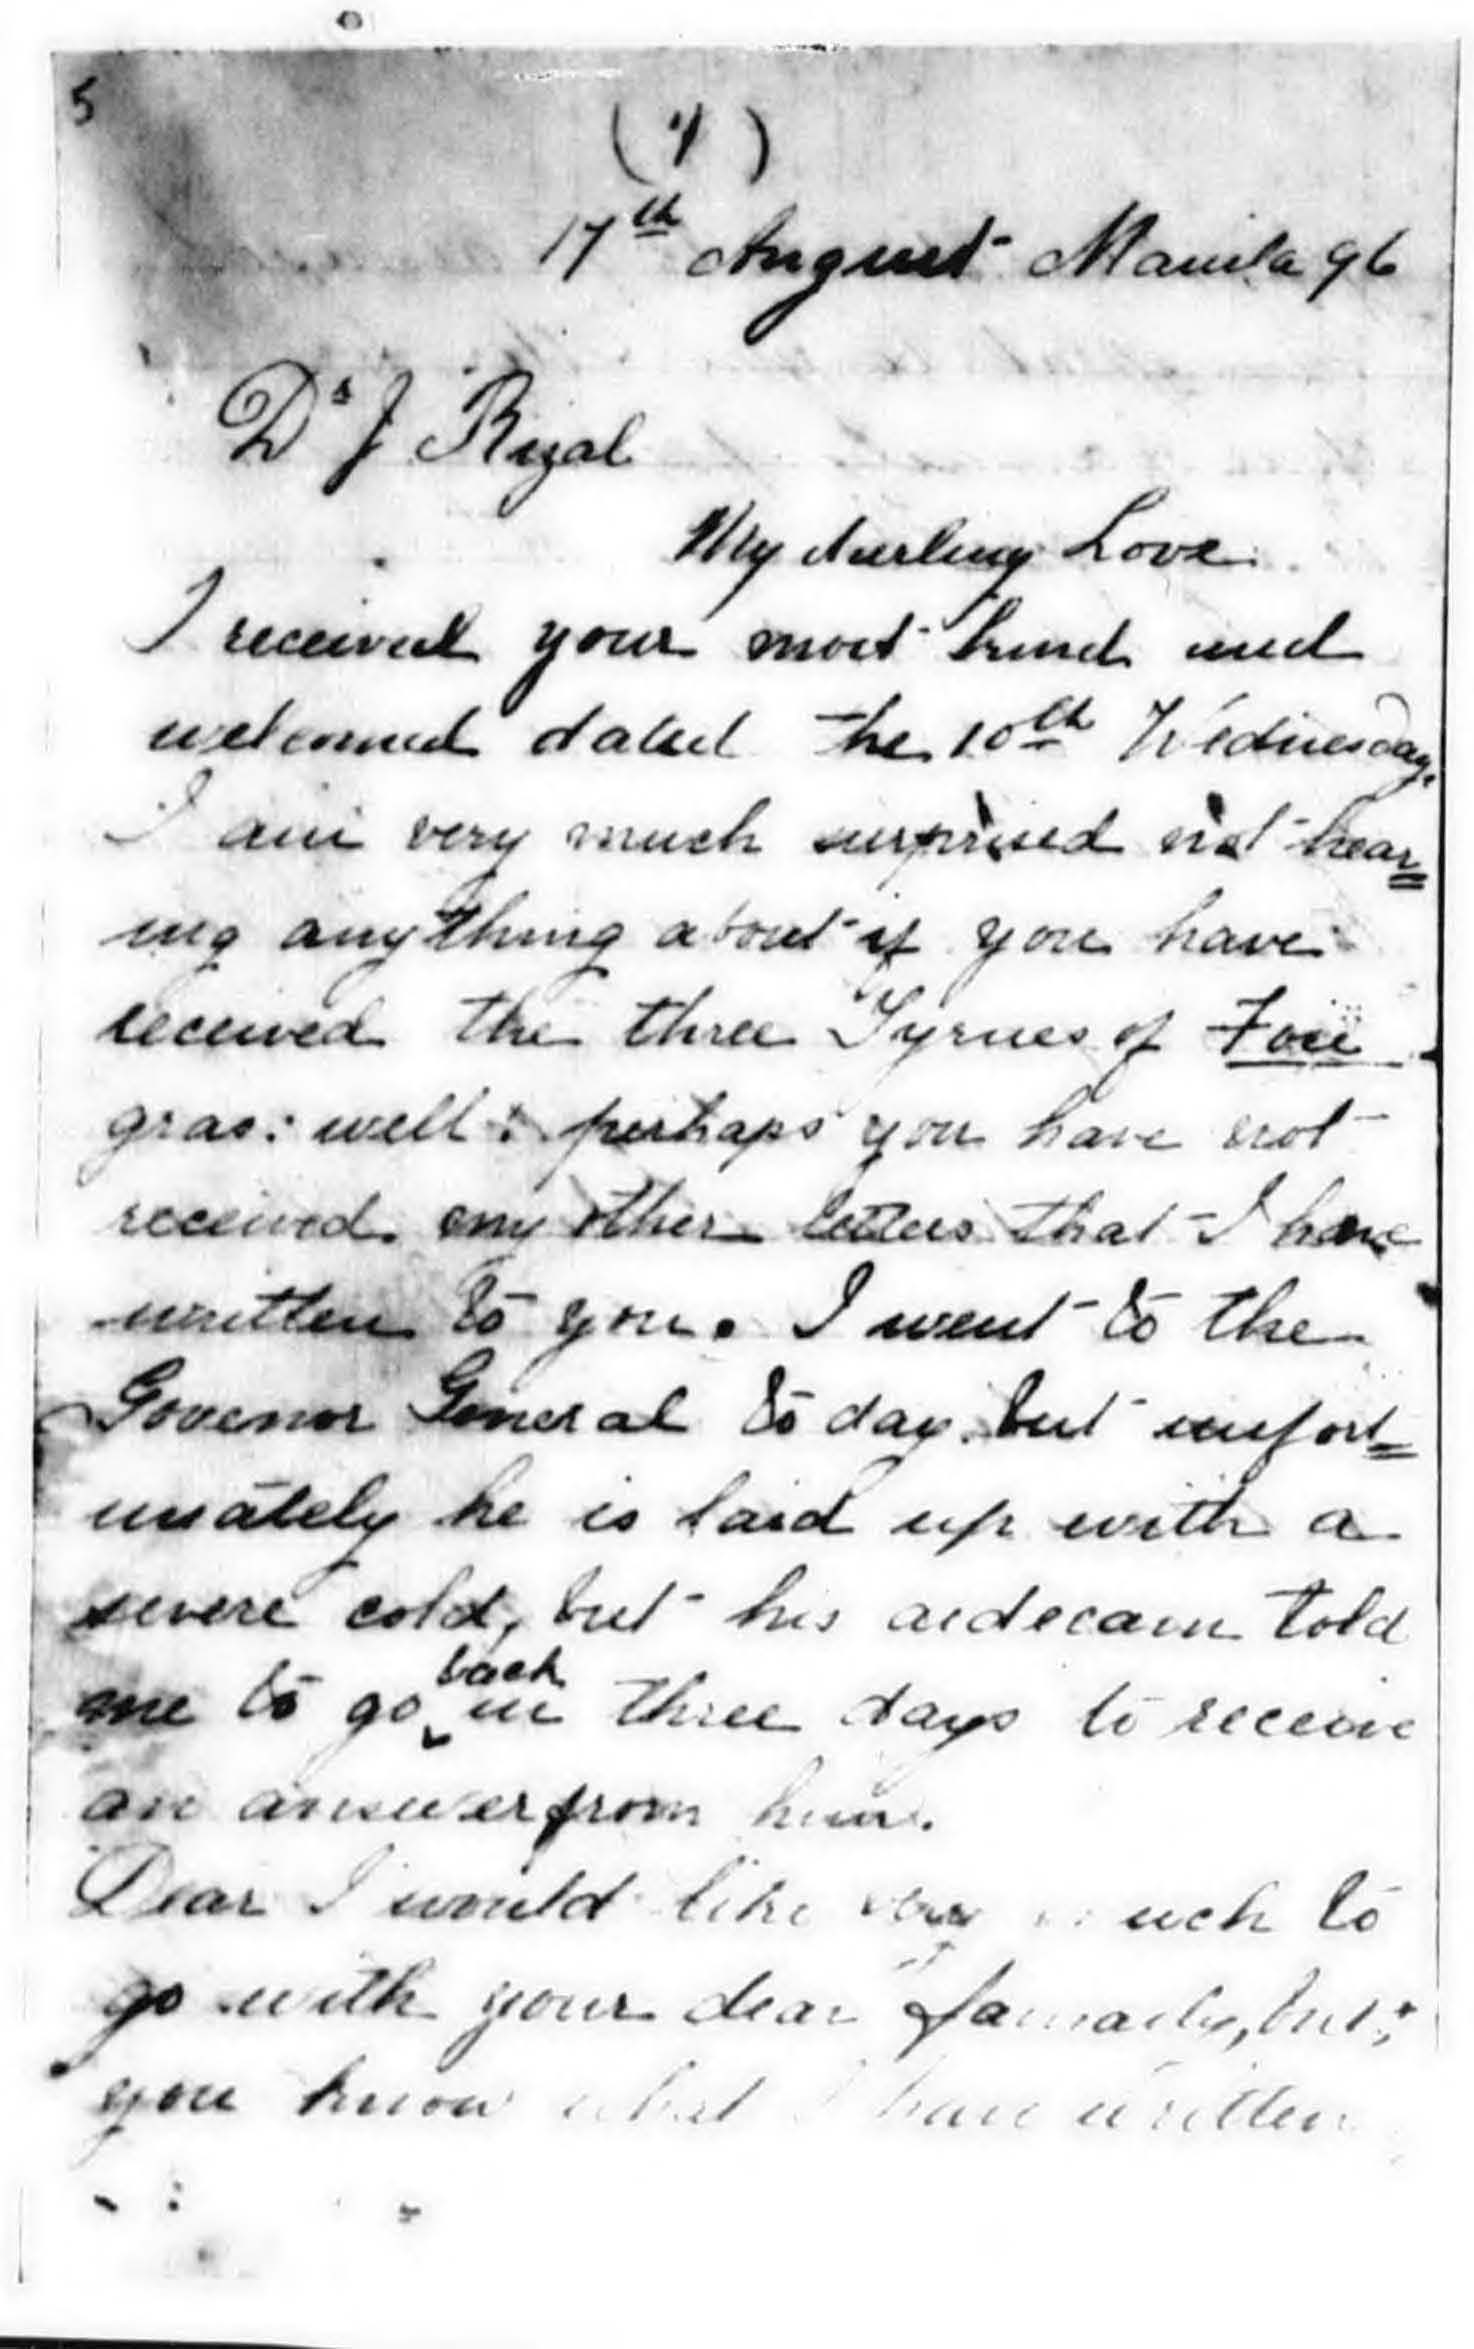 5
(1)
17th August Manila 96
Dr J Rizal
My darling Love.
I received your most kind and
welcomed dated the 10th Wednesday.
I am very much surprised not hear=
ing anything about if you have
received the three Tyrnes of Foie
gras: well: perhaps you have not
received my other letters that I have
written to you. I went to the
Govenor General to day. but unfort=
unately he is laid up with a
severe cold, but his aidecam told
me to go back in three days to receive
an answer from him.
Dear I would like very much to
go with your dear but;
you know what I have written